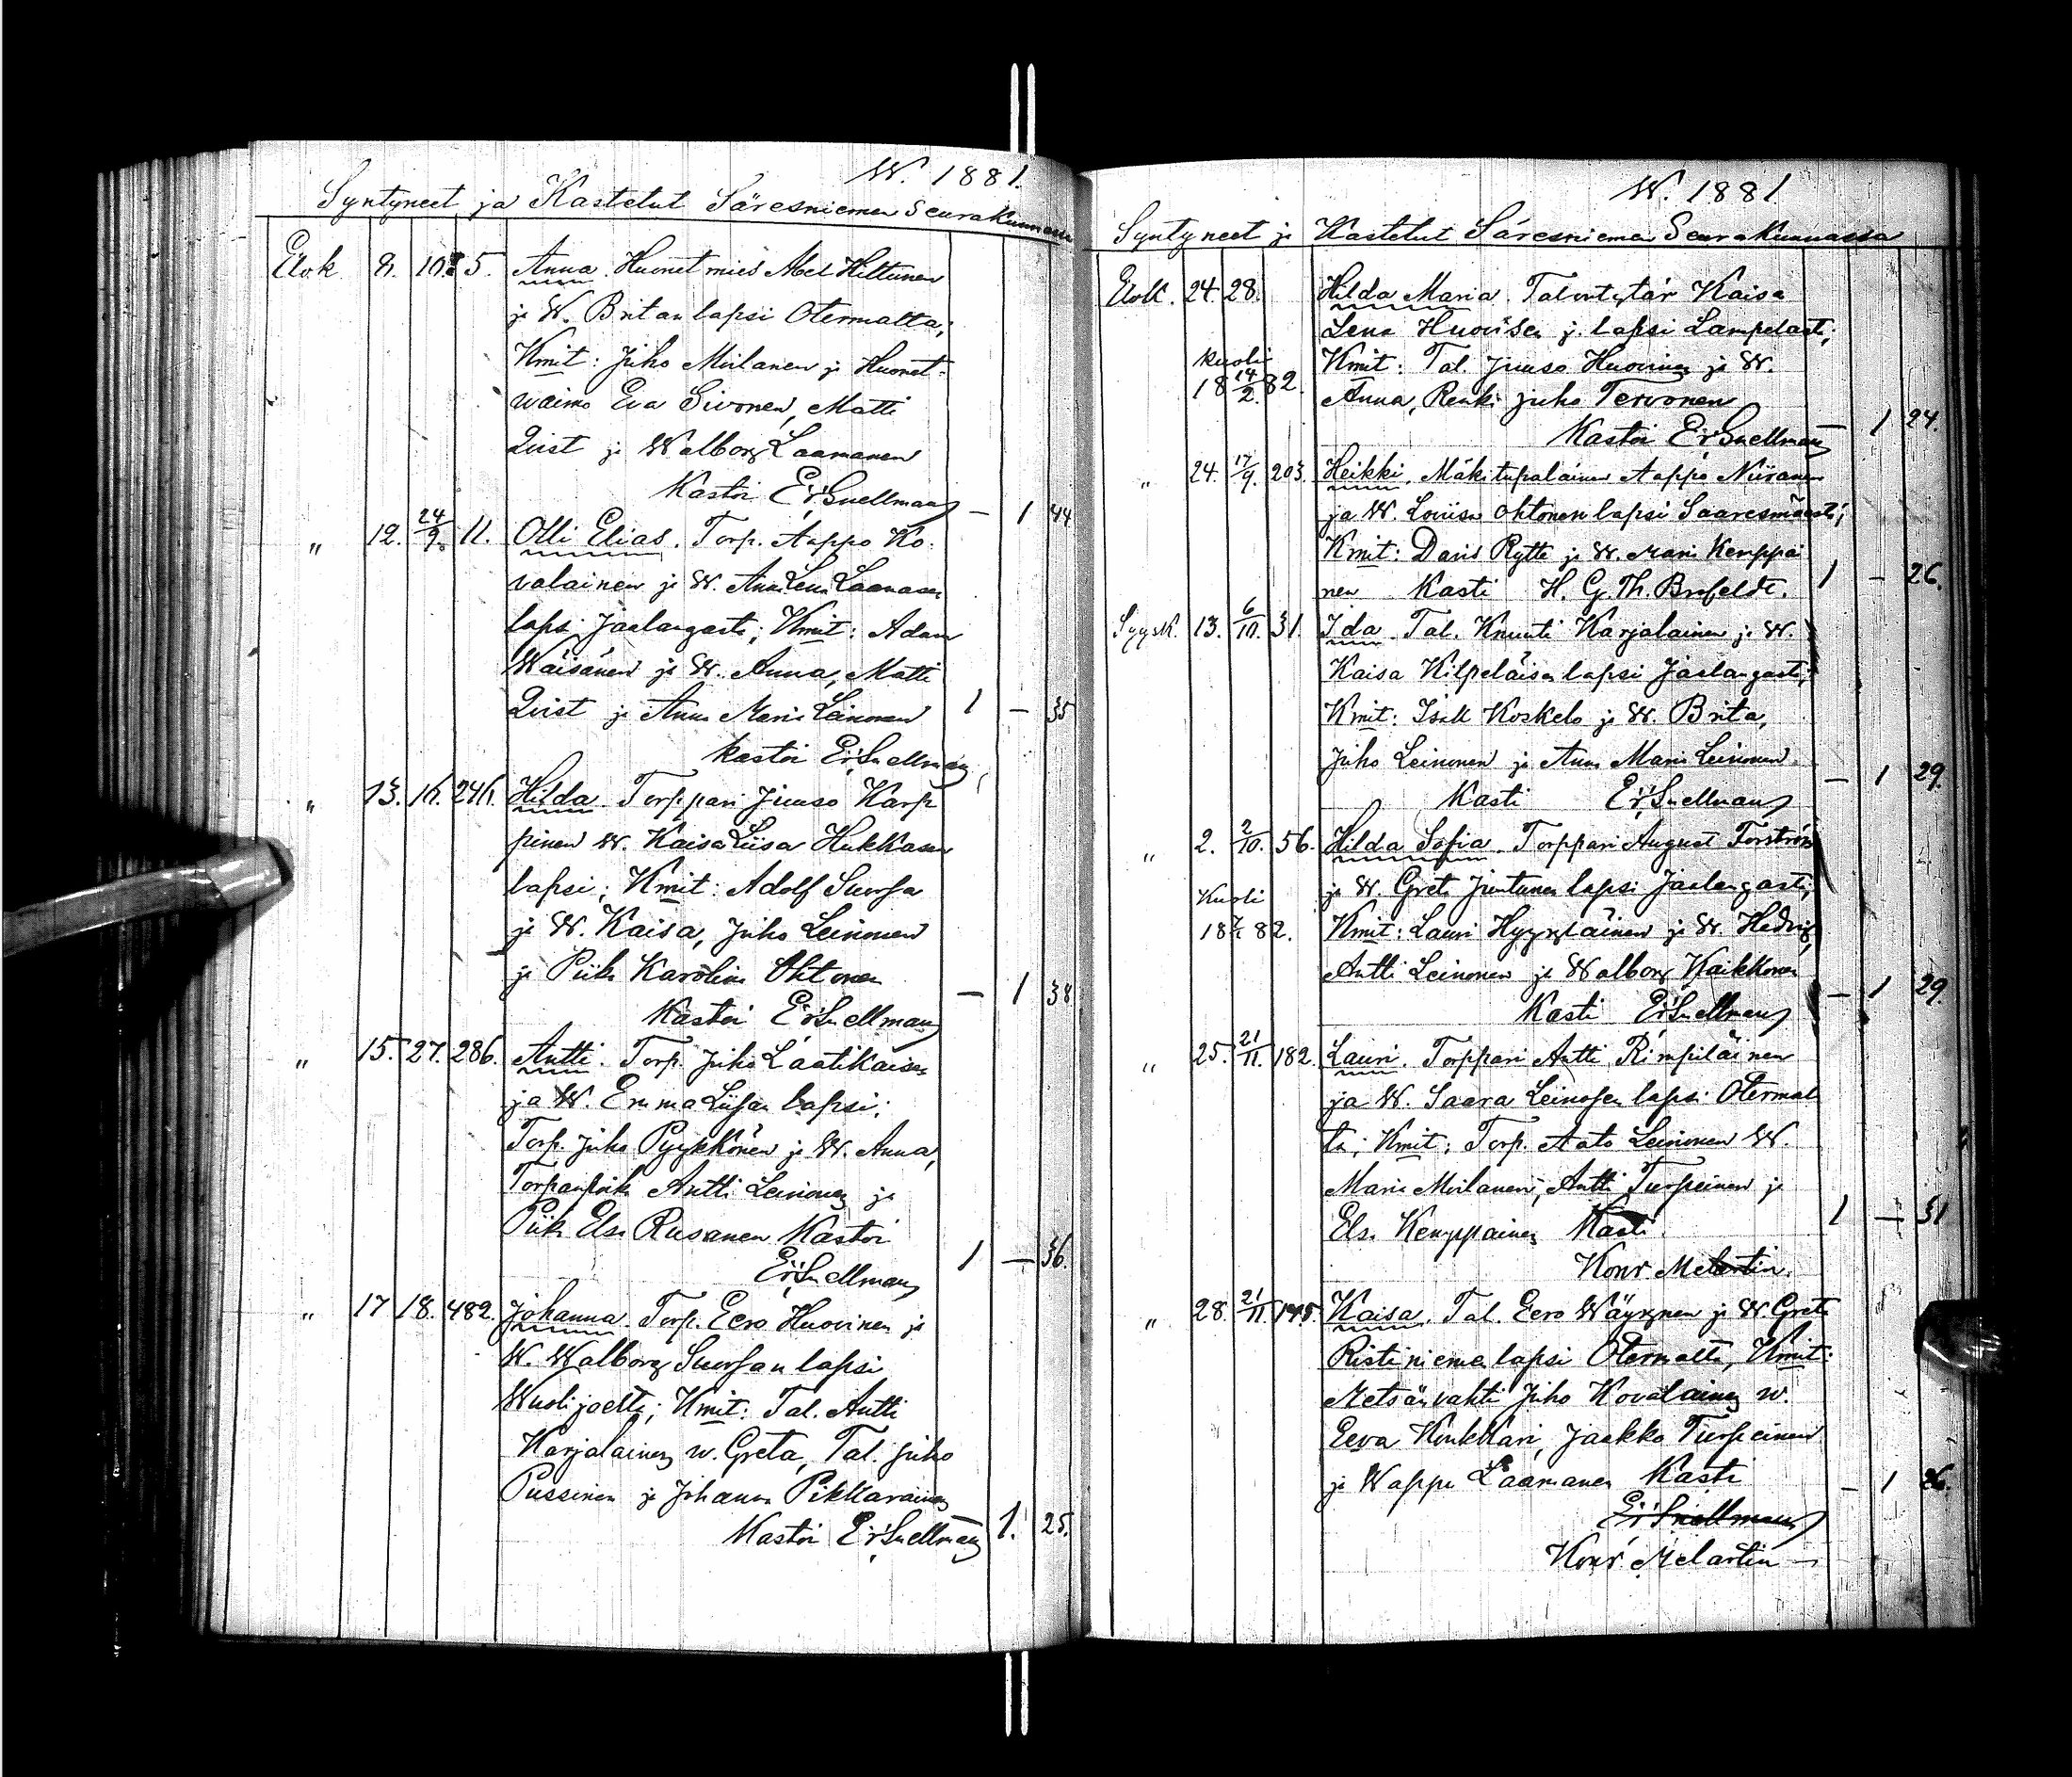 W. 1881.
Syntyneet ja Kastetut Säresniemen Seurakunnassa
Elok 9. 10. 5. Anna. Huonetmies Abel Hiltunen
ja W. Britan lapsi Otermalta;
Kmit: Juho Moilanen ja Huonet-
waimo Eva Sivonen, Matti
Qvist ja Walborg Laamanen
Kastoi Er. Snellman — 1 44
" 12. 24/9. 11. Olli Elias. Torp. Aappo Ko-
valainen ja W. Anna Lena Laanasen
lapsi Jaalangasta; Kmit: Adam
Wäisänen ja W. Anna, Matti
Qvist ja Anna Maria Leinonen 1 — 35
Kastoi Er. Snellman
" 13. 16. 246. Hilda. Torppari Juuso Karp
pinen W. Kaisa Liisa Hukkasen
lapsi; Kmit: Adolf Suorsa
ja W. Kaisa, Juho Leinonen
ja Piika Karolina Ohtonen — 1 38
Kastoi Er. Snellman
" 15. 27. 286. Antti. Torp. Juho Laatikaisen
ja W. Emma Liisan lapsi;
Torp. Juho Pyykkönen ja W. Anna,
Torpanpoika Antti Leinonen ja
Piika Elsa Rusanen Kastoi
Er. Snellman 1 — 36.
" 17 18. 482. Johanna. Torp. Eero Huovinen ja
W. Walborg Suorsan lapsi
Wuolijoelta; Kmit: Tal. Antti
Karjalainen w. Greta, Tal. Juho
Pussinen ja Johanna Pikkarainen
Kastoi Er. Snellman 1. 25.
W. 1881
Syntyneet ja Kastetut Säresniemen Seurakunnassa
Elok. 24. 28. Hilda Maria. Talontytär Kaisa
Lena Huovisen j. lapsi Lampelasta;
Kuoli Kmit: Tal. Juuso Huovinen ja W.
18 14/2 82. Anna, Renki Juho Tervonen
Kastoi Er. Snellman — 1 24.
" 24. 17/9. 203. Heikki. Mäkitupalainen Aappo Niiranen
ja W. Lovisa Ohtonen lapsi Saaresmäestä;
Kmit: David Rytti ja W. Maria Kemppai
nen Kasti H. G. Th. Brofeldt. 1 — 26.
Syysk. 13. 6/10. 31. Ida. Tal. Knuuti Karjalainen ja W.
Kaisa Kilpeläisen lapsi Jaalangasta;
Kmit: Isak Koskelo ja W. Brita,
Juho Leinonen ja Anna Maria Leinonen.
Kasti Er. Snellman — 1 29.
" 2. 2/10. 56. Hilda Sofia. Torppari August Forström
ja W. Greta Juntunen lapsi Jaalangasta;
Kuoli
18 82. Kmit: Lauri Hyyryläinen ja W. Hedvig,
Antti Leinonen ja Walborg Kaikkonen
Kasti Er. Snellman — 1 29.
" 25. 21/11. 182. Lauri. Torppari Antti Rimpiläinen
ja W. Saara Leinosen lapsi Otermal
ta; Kmit: Torp. Aato Leinonen W.
Maria Moilanen, Antti Turpeinen ja
Elsa Kemppainen Kasti. 1 — 31
Konr Melartin.
" 28. 21/11 175. Kaisa. Tal. Eero Wäyrynen ja W. Greta
Ristiniemen lapsi Otermalta, Kmit:
Metsänvahti Juho Kovalainen w.
Eeva Konkkari, Jaakko Turpeinen
ja Wappu Laamanen Kasti — 1 26.
Er. Snellman
Konr. Melartin —